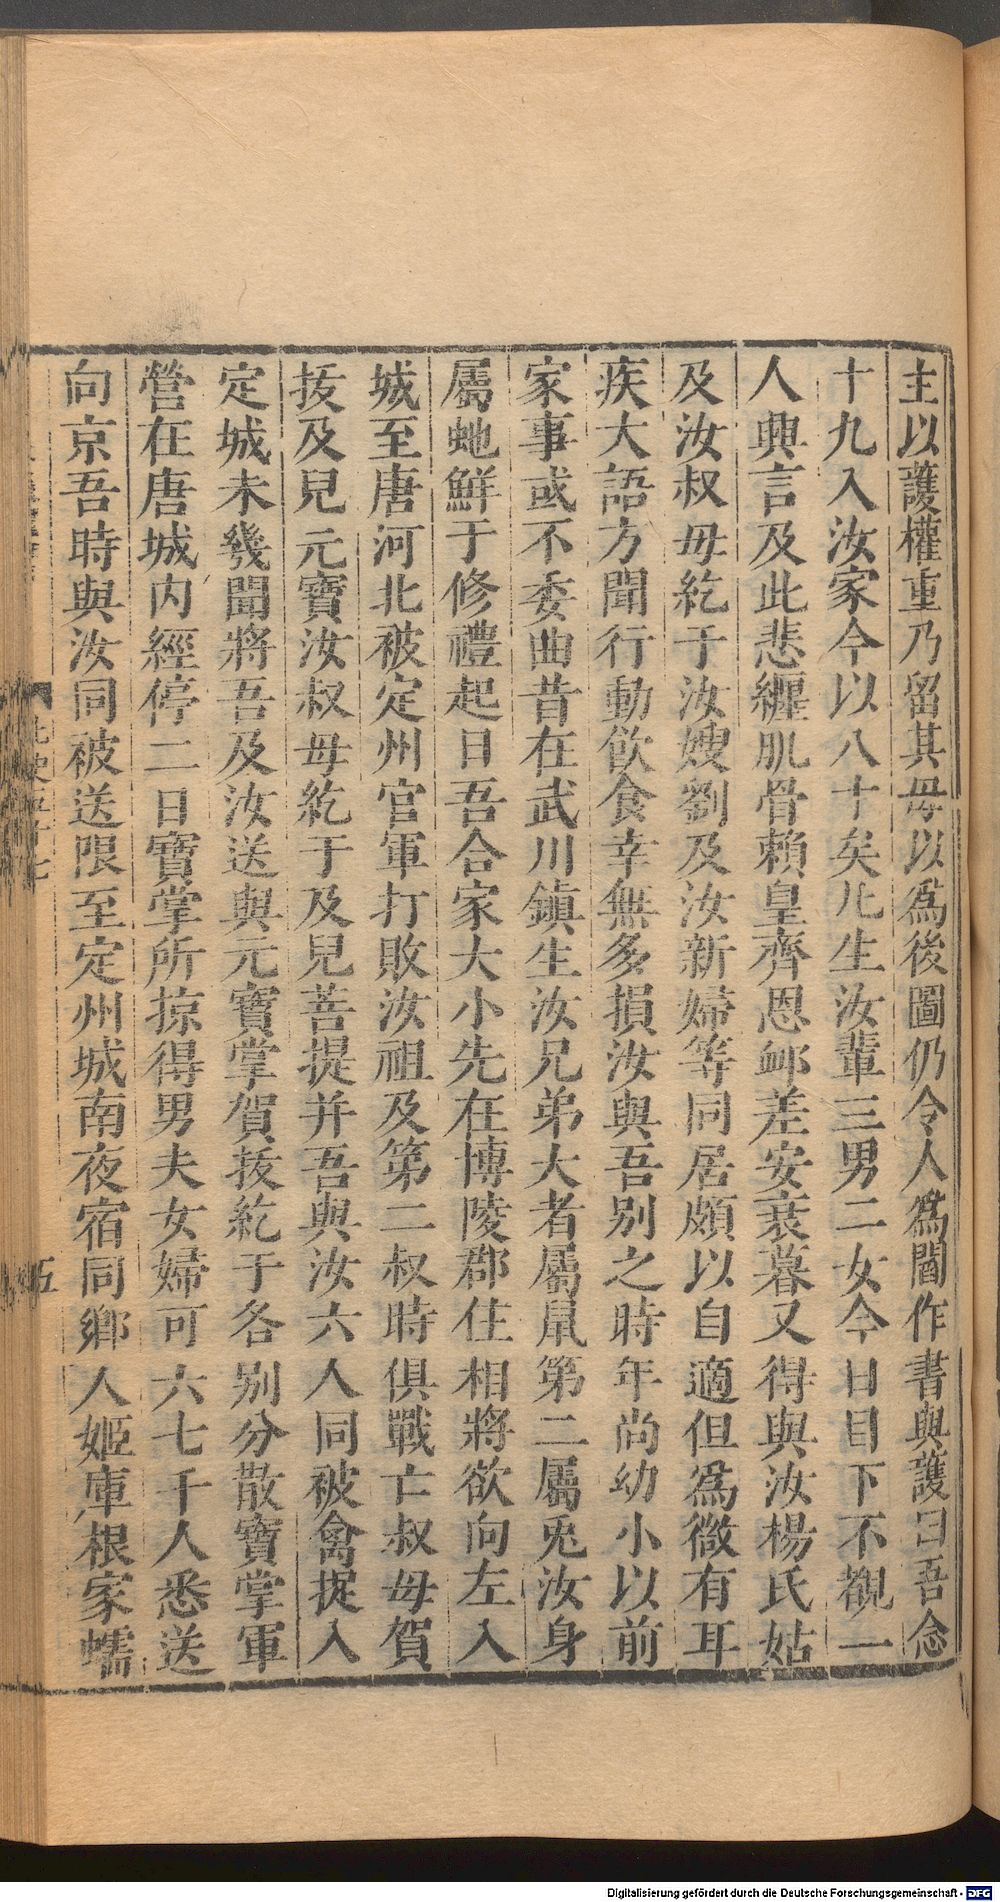 主以護權重乃留其母以爲後圖仍令人爲閻作書與護曰吾念
十九入汝家今以八十矣凡生汝輩三男二女今日目下不覩一
人興言及此悲纏肌骨賴皇齊恩䘏差安衰暮又得與汝楊氏姑
及汝叔母紇于汝嫂劉及汝新婦等同居頗以自適但爲微有耳
疾大語方聞行動飲食幸無多損汝與吾別之時年尚幼小以前
家事或不委曲昔在武川鎮生汝兄弟大者屬鼠第二屬兎汝身
屬虵鮮于修禮起日吾合家大小先在博陵郡住相將欲向左入
城至唐河北被定州官軍打敗汝祖及第二叔時俱戰亡叔母賀
拔及兒元寶汝叔母紇于及兒菩提并吾與汝六人同被禽捉入
定城未幾聞將吾及汝送與元寶掌賀拔紇于各別分散寶掌軍
營在唐城内經停二日寶掌所掠得男夫女婦可六七千人悉送
向京吾時與汝同被送限至定州城南夜宿同鄉人姬庫根家蠕
五
Digitalisierung gefördert durch die Deutsche Forschungsgemeinschaft - DFG